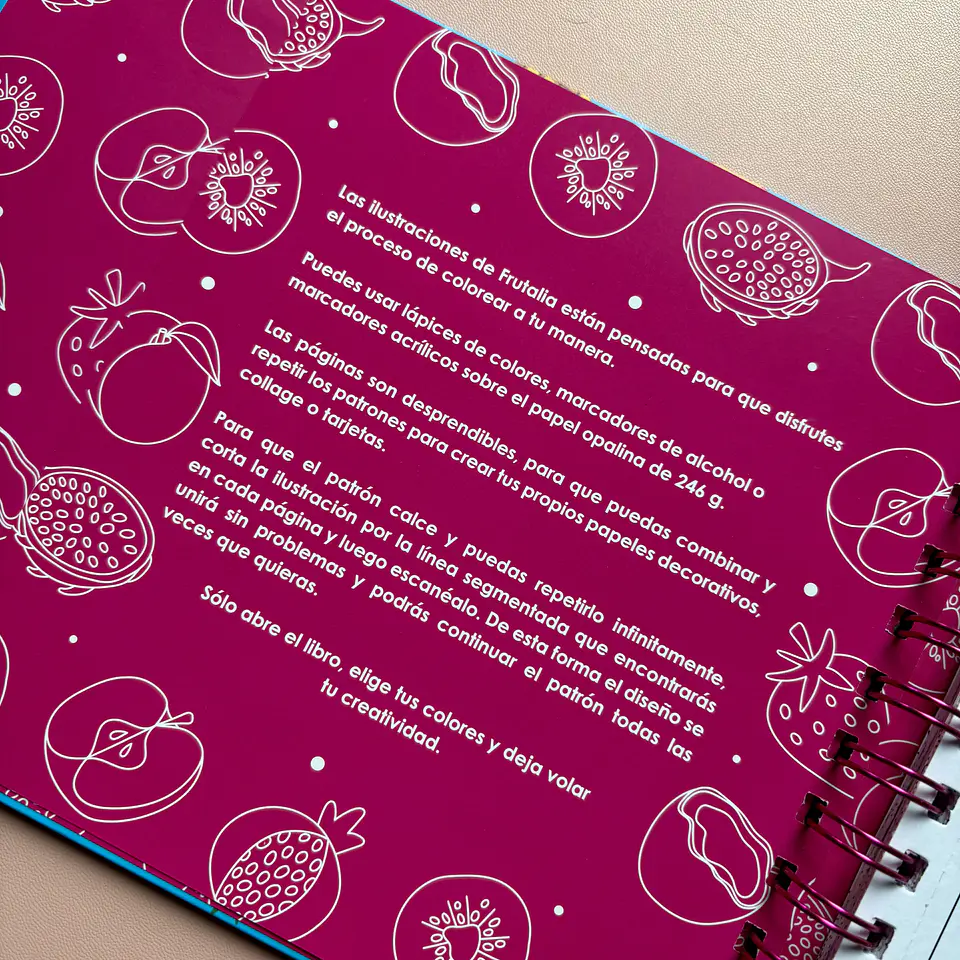 Las ilustraciones de Frutalia están pensadas para que disfrutes
el proceso de colorear a tu manera.
Puedes usar lápices de colores, marcadores de alcohol o
marcadores acrílicos sobre el papel opalina de 246 g.
Las páginas son desprendibles, para que puedas combinar y
repetir los patrones para crear tus propios papeles decorativos,
collage o tarjetas.
Para que el patrón calce y puedas repetirlo infinitamente,
corta la ilustración por la línea segmentada que encontrarás
en cada página y luego escanéalo. De esta forma el diseño se
unirá sin problemas y podrás continuar el patrón todas las
veces que quieras.
Sólo abre el libro, elige tus colores y deja volar
tu creatividad.